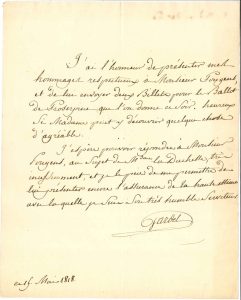 J'ai l'honneur de présenter mes
hommages respectueux à Monsieur Pougens,
et de lui envoyer deux Billets pour le Ballet
de Proserpine que l'on donne ce Soir. heureux
Si Madame peut y découvrir quelque chose
d'agréable.
J'espère pouvoir répondre à Monsieur
Pougens, au Sujet de M.me la Duchesse, très
incessamment, et je le prie de me permettre de
lui présenter encore l'assurance de la haute estime
avec laquelle je Suis Son très humble Serviteur
Gardel
ce 15 Mai 1818